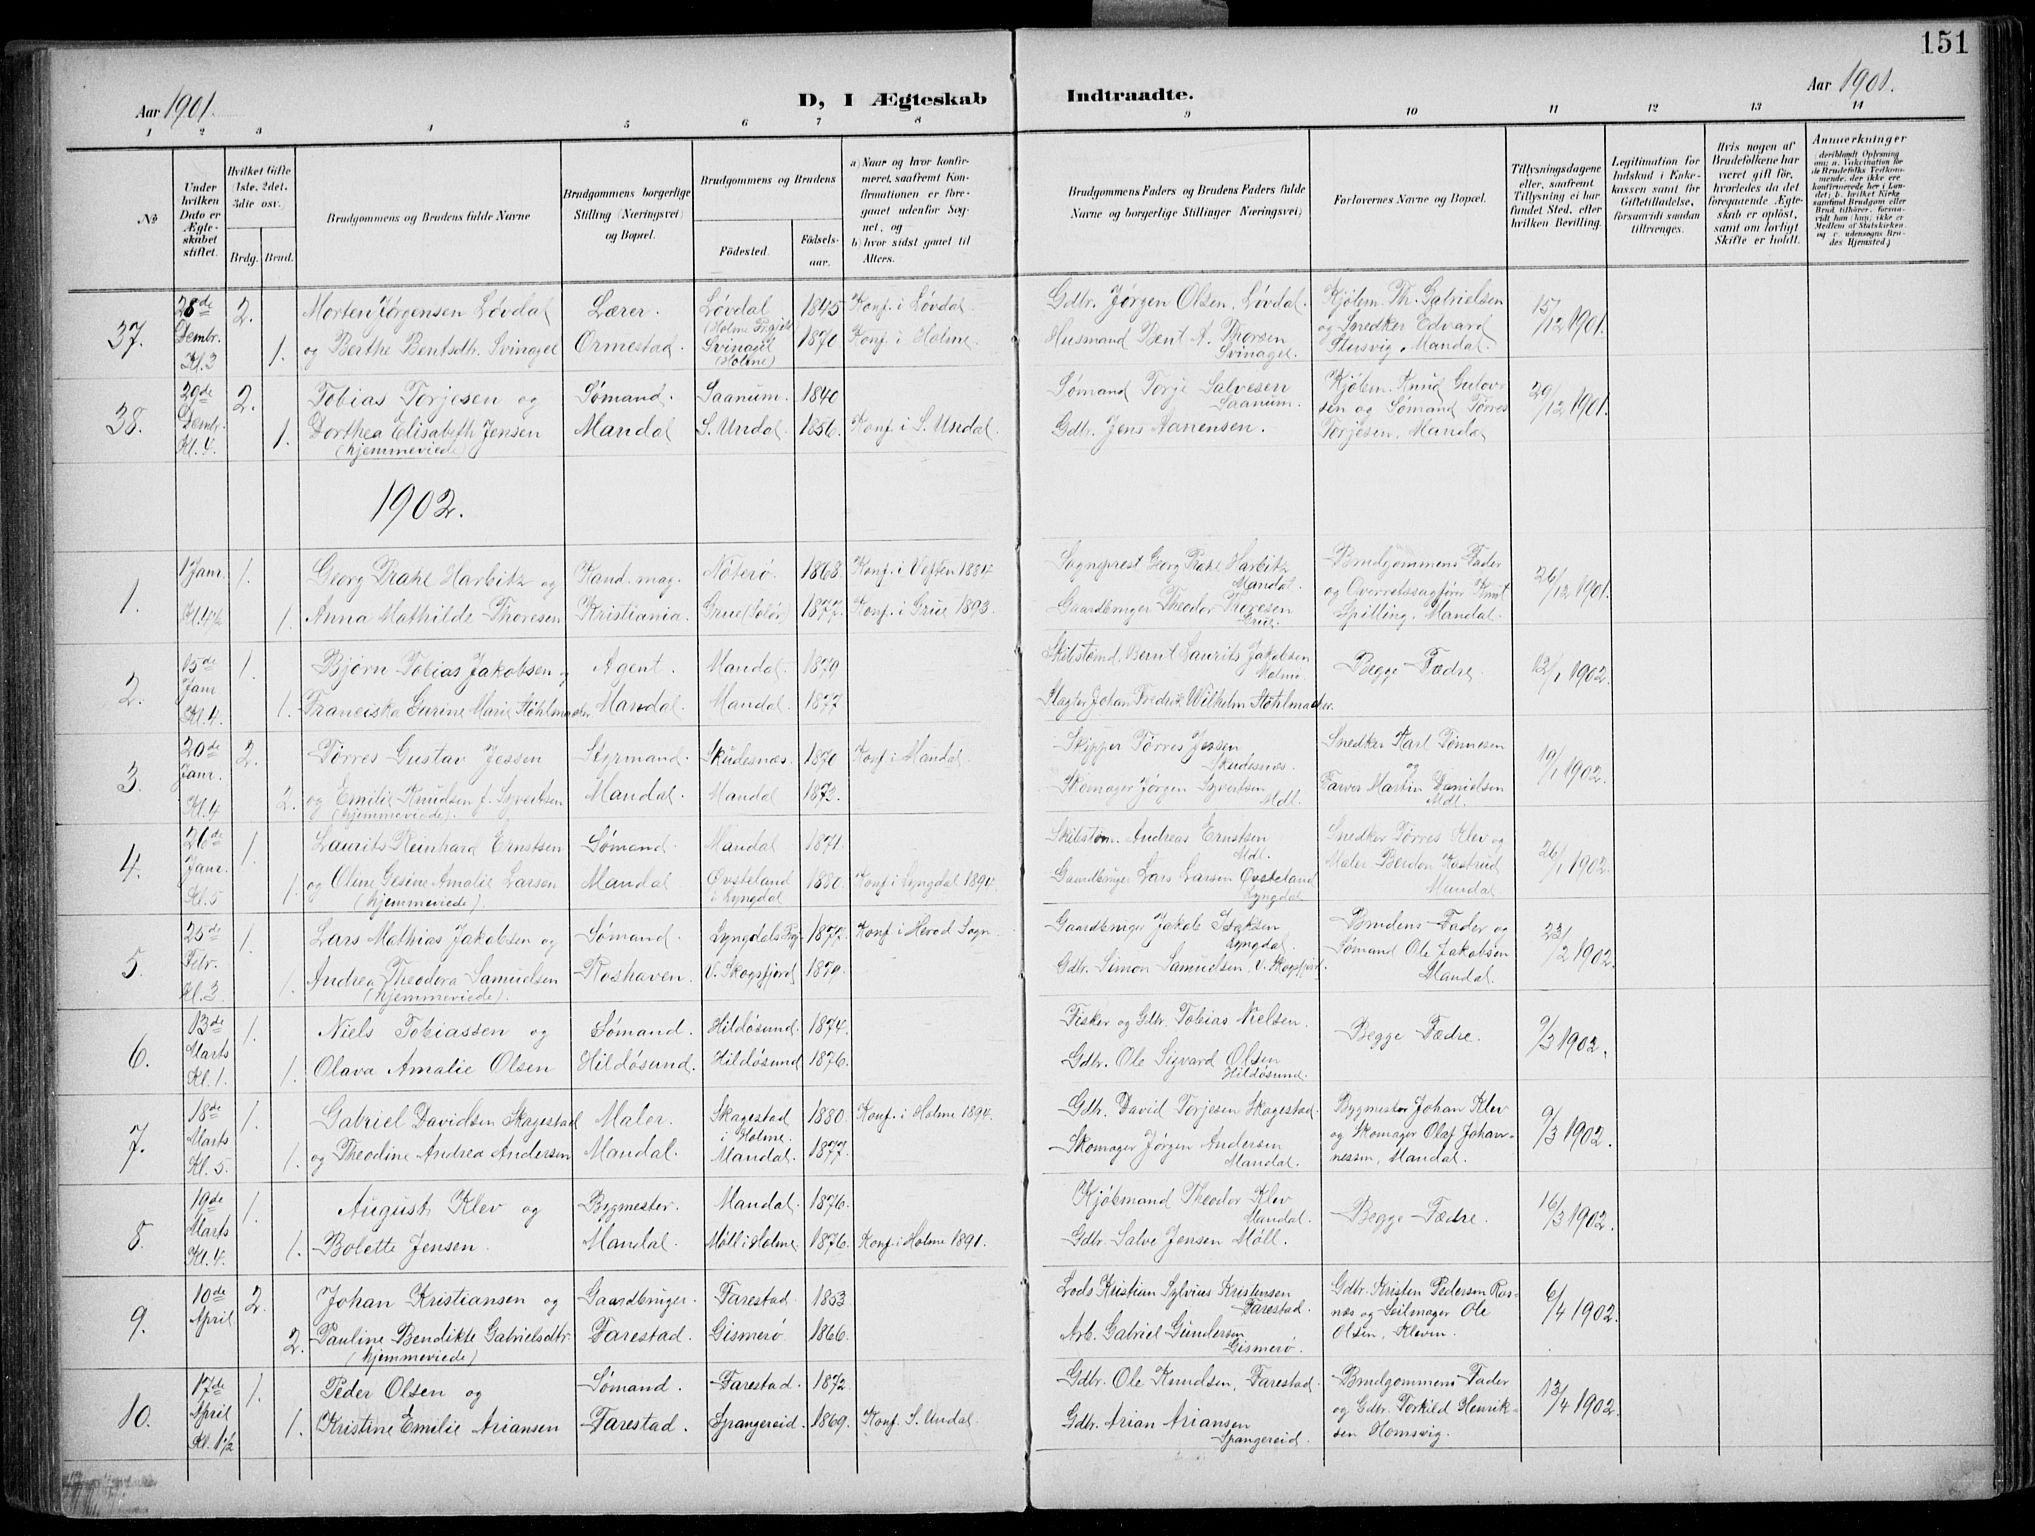 151
Aar 1901.
D, I Ægteskab Indtraadte.
Aar 1901.
1 2 3 4 5 6 7 8 9 10 11 12 13 14
No
Under hvilken Dato er Ægteskabet stiftet.
Hvilket Gifte (1ste, 2det, 3die osv.)
Brdg. Brud.
Brudgommens og Brudens fulde Navne
Brudgommens borgerlige Stilling (Næringsvei) og Bopæl.
Brudgommens og Brudens
Fødested.
Fødselsaar.
a) Naar og hvor konfirmeret, saafremt Konfirmationen er foregaaet udenfor Sognet, og
b) hvor sidst gaaet til Alters.
Brudgommens Faders og Brudens Faders fulde Navne og borgerlige Stillinger Næringsvei)
Forlovernes Navne og Bopæl.
Tillysningsdagene eller, saafremt Tillysning ei har fundet Sted, efter hvilken Bevilling.
Legitimation for Indskud i Enkekassen samt for Giftetilladelse, forsaavidt saadan tiltrænges.
Hvis nogen af Brudefolkene har været gift før, hvorledes da det foregaaende Ægteskab er opløst, samt om lovligt Skifte er holdt.
Anmærkninger
37. 28de Dembr. Kl. 3
2. Morten Jørgensen Løvdal
1. og Berthe Bentsdtr. Svinagel
Lærer.
Ormestad.
Løvdal (Holme Prgjld) 1845
Svinagel (Holme) 1870
Konf. i Løvdal
Konf. i Holme.
Gdbr. Jørgen Olsen, Løvdal.
Husmand Bent A. Thorsen Svinagel.
Kjøbm. Th. Gabrielsen
og Snedker Edvard
Stusvig, Mandal.
15/12 1901.
38. 29de Dembr. Kl. 4.
2. Tobias Torjesen og
1. Dorthea Elisabeth Jensen
(hjemmeviede)
Sømand.
Mandal
Saanum. 1840
S. Undal. 1856.
Konf. i S. Undal.
Sømand Torje Salvesen Saanum.
Gdbr. Jens Aanensen.
Kjøbm. Knud Gutorm-
sen og Sømand Tørres
Torjesen, Mandal
29/12 1901.
1902.
1. 1 Janr. Kl. 4½
1. Georg Prahl Harbitz og
1. Anna Mathilde Thoresen
Kand. mag.
Kristiania.
Nøterø. 1868.
Grue (Solør) 1877.
Konf. i Vefsen 1884
Konf. i Grue 1893.
Sogneprest Georg Prahl Harbitz Mandal.
Gaardbruger Theodor Thoresen Grue.
Brudgommens Fader
og Overretssagfører Knut
Spilling, Mandal.
26/12 1901.
2. 15de Janr Kl. 4.
1. Bjørn Tobias Jakobsen og
1. Franciska Gurine Marie Støhlmacher
Agent.
Mandal.
Mandal. 1879
Mandal. 1877
Skibstømd. Bernt Laurits Jakobsen Malmø.
Slagter Johan Fredrik Wilhelm Støhlmacher.
Begge Fædre.
12/1 1902.
3. 20de Janr. Kl. 4
2. Tørres Gustav Jessen
2. og Emilie Knudsen f. Syvertsen
(hjemmeviede).
Styrmand.
Mandal.
Skudesnæs. 1870
Mandal 1873.
Konf. i Mandal.
Skipper Tørres Jessen Skudesnæs.
Skomager Jørgen Syvertsen Mdl.
Snedker Karl Tønnesen
og
Farver Martin Danielsen
Mdl.
19/1 1902.
4. 26de Janr. Kl. 5
1. Laurits Reinhard Ernstsen
1. og Oline Gesine Amalie Larsen
(hjemmeviede)
Sømand.
Mandal
Mandal 1871.
Øvsteland i Lyngdal 1880.
Konf. i Lyngdal 1894.
Skibstøm. Andreas Ernstsen Mdl.
Gaardbruger Lars Larsen Øvsteland Lyngdal
Snedker Tørres Klev og
Maler Berdon Kastrud
Mandal.
26/1 1902.
5. 25de Febr. Kl. 3
1. Lars Mathias Jakobsen og
1. Andrea Theodora Samuelsen
(hjemmeviede).
Sømand.
Roshaven.
Lyngdals Prgj. 1877.
V. Skogsfjord 1879.
Konf. i Herad Sogn.
Gaardbruger Jakob Isaksen Lyngdal.
Gdbr. Simon Samuelsen, V. Skogsfjord.
Brudens Fader og
Sømand Ole Jakobsen
Mandal.
23/2 1902.
6. 13de Marts Kl. 1.
1. Niels Tobiassen og
1. Olava Amalie Olsen
Sømand.
Hildøsund.
Hildøsund. 1874.
Hildøsund 1876.
Fisker og Gdbr. Tobias Nielsen.
Gdbr. Ole Sigvard Olsen Hildøsund.
Begge Fædre.
9/3 1902.
7. 18de Marts Kl. 5.
1. Gabriel Davidsen Skagestad
1. og Theodine Andrea Andersen
Maler.
Mandal.
Skagestad i Holme. 1880
Mandal. 1877.
Konf. i Holme 1894.
Gdbr. David Torjesen Skagestad.
Skomager Jørgen Andersen Mandal.
Bygmester Johan Klev
og Skomager Olaf Johan-
nessen, Mandal.
9/3 1902.
8. 19de Marts Kl. 4.
1. August Klev og
1. Bolette Jensen.
Bygmester.
Mandal.
Mandal. 1876.
Møll i Holme. 1876.
Konf. i Holme 1891.
Kjøbmand Theodor Klev Mandal.
Gdbr. Salve Jensen Møll.
Begge Fædre.
16/3 1902.
9. 10de April
2. Johan Kristiansen og
2. Pauline Bendikte Gabrielsdtr.
(hjemmeviede)
Gaardbruger.
Farestad.
Farestad. 1853
Gismerø. 1866.
Lods Kristian Sylvius Kristensen Farestad.
Arb. Gabriel Gundersen Gismerø.
Gdbr. Kristen Pedersen Ros-
næs og Seilmager Ole
Olsen, Kleven.
6/4 1902.
10. 17de April Kl. 1½
1. Peder Olsen og
1. Kristine Emilie Ariansen
Sømand.
Farestad.
Farestad. 1872.
Spangereid. 1869.
Konf. S. Undal.
Gdbr. Ole Knudsen, Farestad.
Gdbr. Arian Ariansen Spangereid.
Brudgommens Fader
og Gdbr. Torkild Henrik-
sen Homsvig.
13/4 1902.